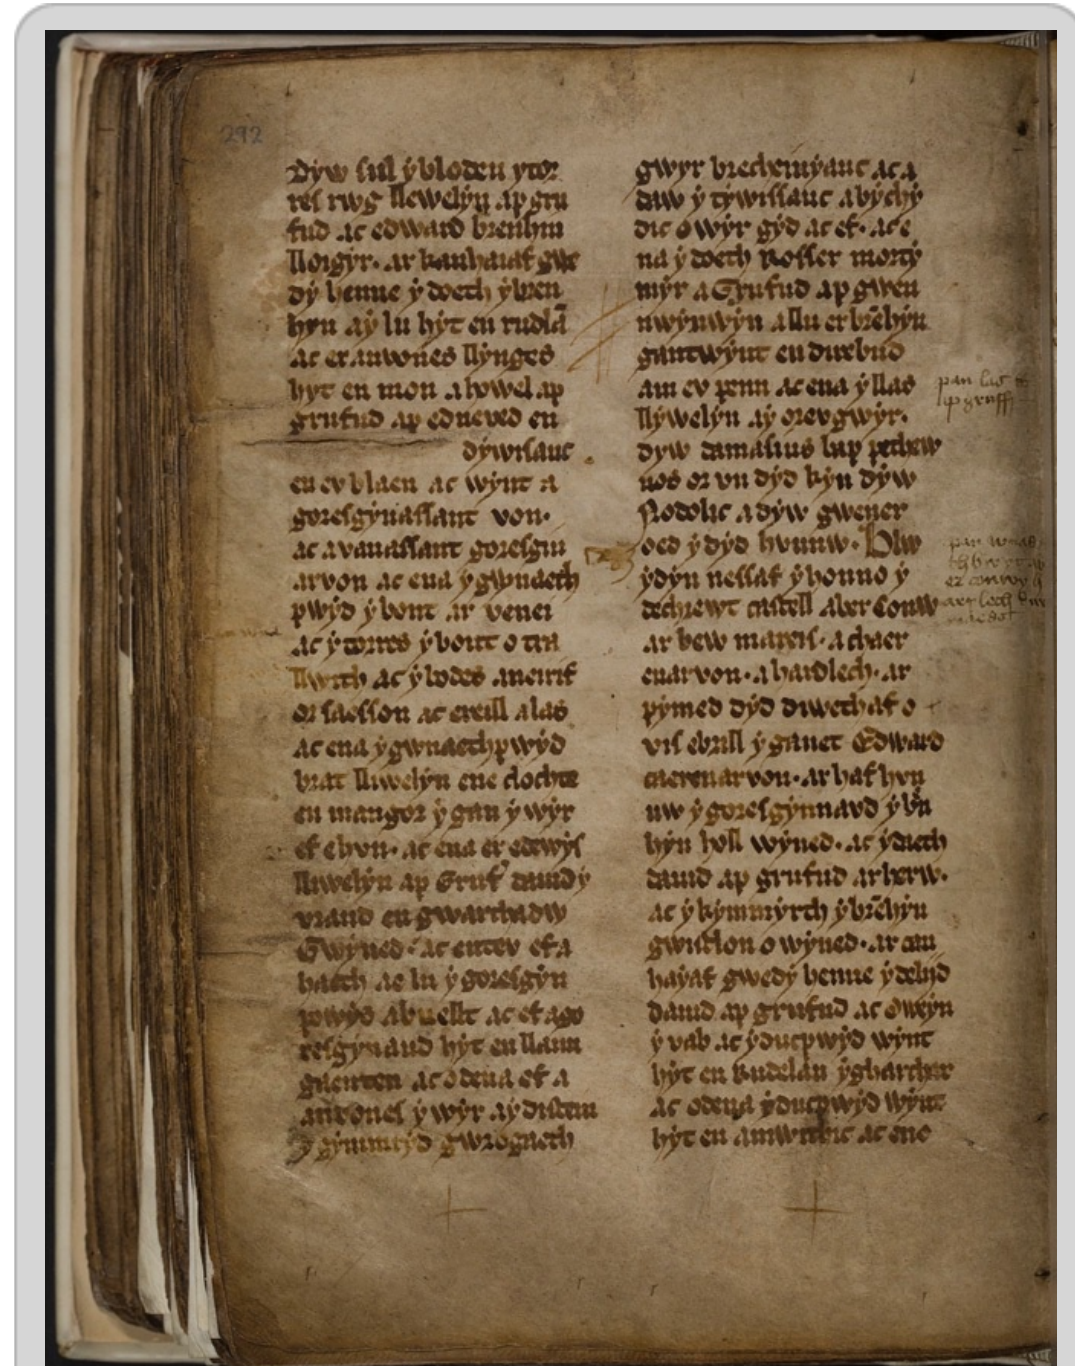 292
Dyw sul ẏ bloden ytor
res rwg llewelẏn ap gru
fud ac edward brenhin
lloigẏr· ar kanhaiaf gwe
dẏ henne ẏ doeth ẏ bren
hyn aẏ lu hẏt en rudlā
ac er anwones llẏnges
hyt en mon a howel ap
grufud ap edneved en
dẏwisauc
en ev blaen ac wẏnt a
goresgẏnassant von·
ac a vanassant goresgin
arvon ac ena ẏ gwnaeth
pwẏd ẏ bont ar venei
ac ẏ torres ẏ bont o tra
llwith ac ẏ bodes aneirif
or saesson ac ereill a las
ac ena ẏ gwnaethpwẏd
brat lliwelẏn ene clochte
en mangor ẏ gan ẏ wẏr
ef ehvn· ac ena er edewis
lliwelẏn ap Gruf' dauid ẏ
vraud en gwarchadw
Gwẏned· ac entev ef a
haeth ae lu ẏ goresgẏn
powẏs a buellt ac ef a go
resgẏnaud hẏt en llann
ganten ac odena ef a
anvones ẏ wẏr aẏ distein
ẏ gẏmmrẏd gwrogaeth
gwẏr brecheinẏauc ac a
daw ẏ tẏwissauc a bẏchẏ
dic o wẏr gẏd ac ef· ac e
na ẏ doeth Rosser morty
mẏr a Grufud ap gwen
nwẏnwẏn a llu er brēhẏn
gantwẏnt en direbud
am ev penn ac ena ẏ llas
llẏwelẏn aẏ orevgwẏr·
dyw damasius bap pethew
nos or vn dẏd kẏn dẏw
Nodolic a dẏw gwener
oed ẏ dẏd hvnnw· Blw
ẏdẏn nessaf ẏ honno ẏ
dechrewt castell Aber Conw
ar bew mareis· a chaer
enarvon· a hardlech· ar
pẏmed dẏd diwethaf o
vis ebrill ẏ ganet Edward
caerenarvon· ar haf hvn
nw ẏ goresgẏnnavd ẏ brē
hẏn holl wẏned· ac ẏdaeth
dauid ap grufud ar herw·
ac ẏ kẏmmẏrth ẏ brēhẏn
gwistlon o wẏned· ar can
haẏaf gwedẏ henne ẏ delijd
dauid ap grufud ac Oweẏn
ẏ vab ac ẏ ducpwẏd wẏnt
hẏt en Rudelan ẏgharchar
ac odena ẏ ducpwẏd wẏnt
hẏt en amwithic ac eno
pan las
ap gruff